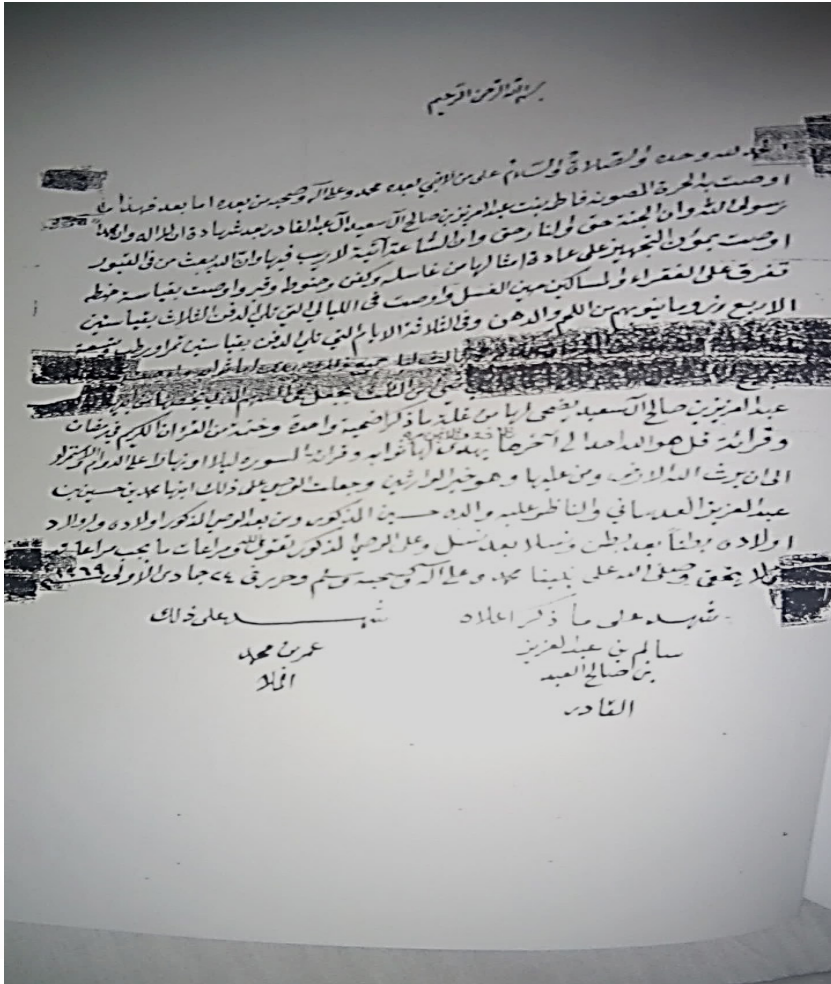 بسم الله الرحمن الرحيم
الحمد لله وحده والصلاة والسلام على من لا نبي بعده محمد وعلى آله وصحبه من بعده اما بعد فهذا ما
اوصت به الحرة المصونه فاطمة بنت عبد العزيز بن صالح آل سعيد آل عبد القادر بعد شهادة ان لا اله الا الله
رسول الله وان الجنة حق والنار حق وان الساعة آتية لا ريب فيها وان الله يبعث من في القبور
اوصت بمؤن التجهيز على عادة امثالها من غاسله وكفن وحنوط وقبر واوصت بقياسة حنطه
تفرق على الفقراء والمساكين حين الغسل واوصت في الليالي التي تلي الدفن الثلاث بقياستين
الاربع رز وما ينوبهم من اللحم والدهن وفي الثلاثة الايام التي تلي الدفن بقياستين تمر
من الثلث يجعل
عبد العزيز بن صالح آل سعيد يضحى لها من غلة ما ذكر اضحية واحدة وختمة من القرآن الكريم في رمضان
وقرائة قل هو الله احد الى آخرها يهدى لها ثوابه وقرائة السوره ليلا او نهارا على الدوام والاستمرار
الى ان يرث الله الارض ومن عليها وهو خير الوارثين وجعلت الوصي على ذلك ابنها محمد بن حسين بن
عبد العزيز العدساني والناظر عليه والده حسين المذكور ومن بعد الوصي المذكور اولاده واولاد
اولاده بطناً بعد بطن ونسلا بعد نسل وعلى الوصي المذكور تقوى الله ومراعات ما يجب مراعاته
ولا يخفى وصلى الله على نبينا محمد وعلى آله وصحبه وسلم وحرر في ٢٤ جمادى الاولى ١٣٦٩
شهد على ما ذكر اعلاه
سالم بن عبد العزيز
بن صالح العبد
القادر
شهد على ذلك
عمر بن محمد
الملا